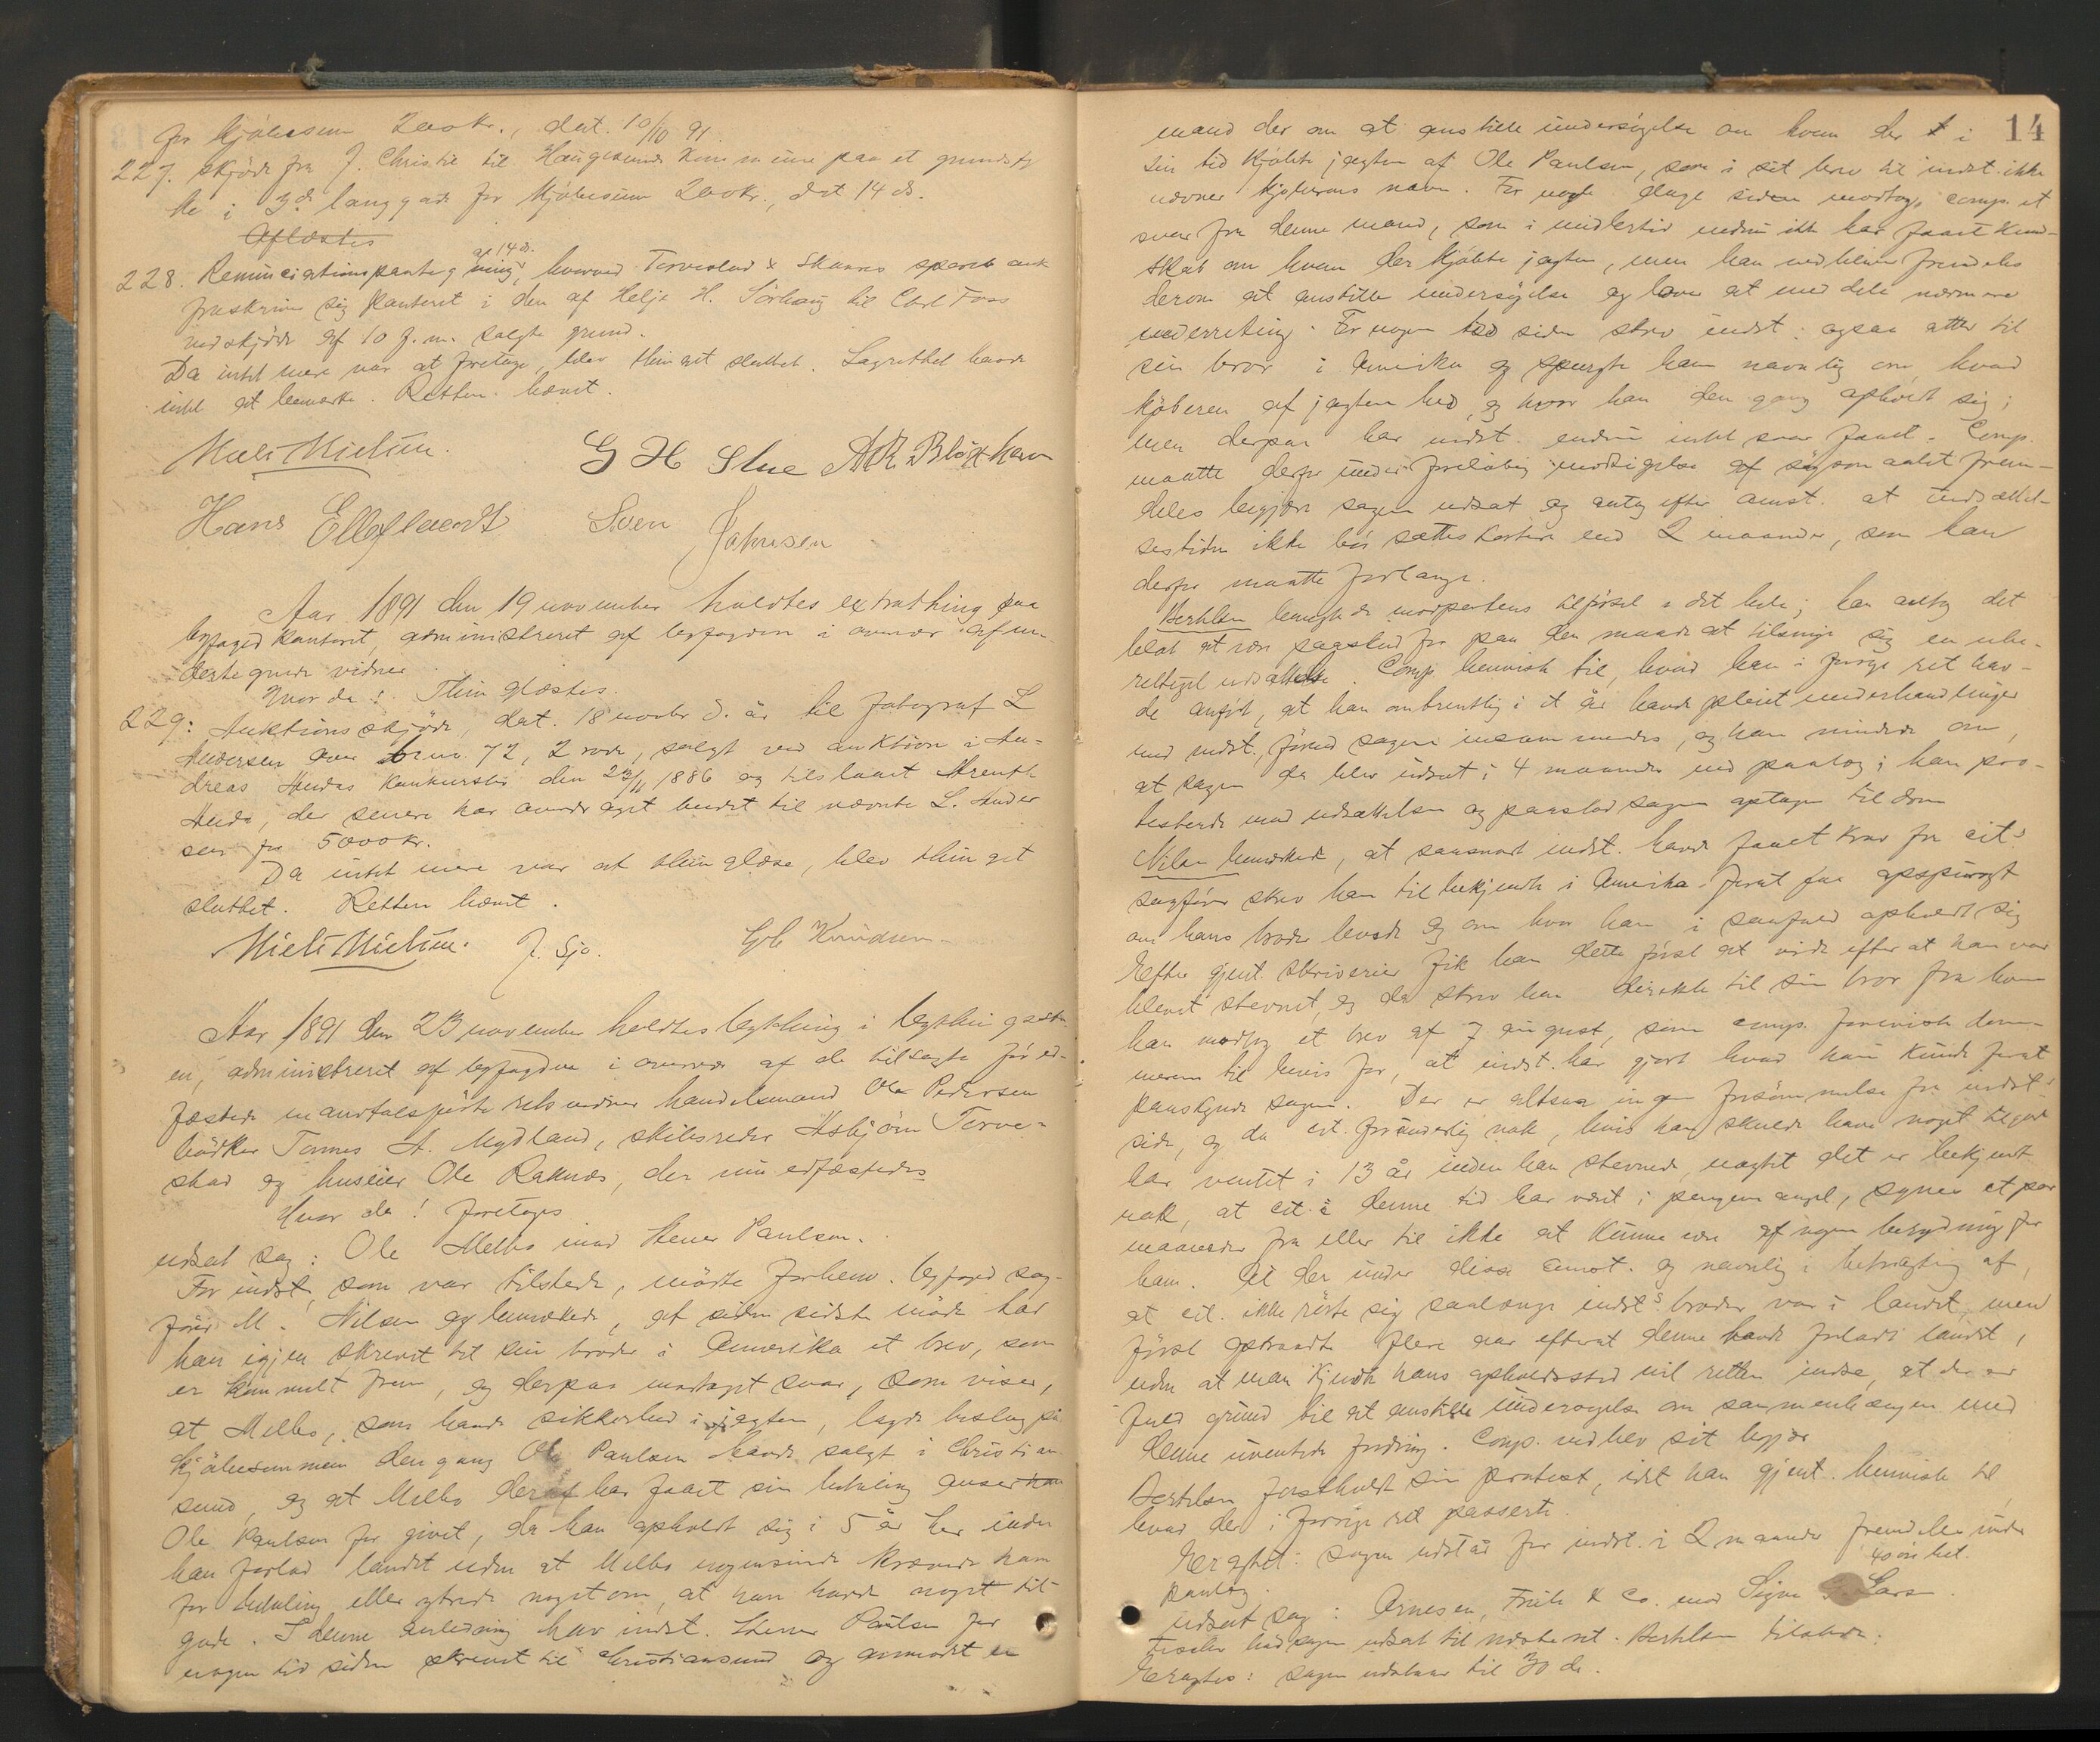 for kjøbesum 200 kr., dat. 10/10 91.
227. Skjøde fra J. Christie til Haugesunds kommune paa et grundsty
ke i 3de langgade for kjøbesum 200 kr., dat 14 ds.
Aflæstes
228. Renunciationspaategning af 14 ds., hvorved Torvestad & Skaare sparebank
fraskriver sig panteret i den af Helje H. Sørhaug til Carl Foss
ved skjøde af 10 f. m. solgte grund.
Da intet mere var at foretage, blev thinget sluttet. Lagrettet havde
intet at bemærke. Retten hævet.
Niels Nielsen. G H Stue A R Bloxham
Hans Elleflaadt Sven Johnsen
Aar 1891 den 19 november holdtes extrathing paa
byfogedkontoret, administreret af byfogden i overvær af un-
dertegnede vidner.
Hvorda! Thinglæstes.
229: Auktionsskjøde, dat. 18 novbr d. år til fotograf L
Andersen over br. no. 72, 2 rode, solgt ved auktion i An-
dreas Hudas konkursbo den 23/11 1886 og tilslaaet
Huda, der senere har overdraget budet til nævnte L. Ander
sen for 5000 kr.
Da intet mere var at thinglæse, blev thinget
sluttet. Retten hævet.
Niels Nielsen. J. Sjo. Knudsen
Aar 1891 den 23 november holdtes bything i bythingstu
en, administreret af byfogden i overvær af de tilsagte før ed-
fæstede mandtalsførte retsvidner handelsmand Ole Pedersen
bødker Tønnes A. Mydland, skibsreder Asbjørn Torve-
stad og huseier Ole Raknæs, der nu edfæstedes
Hvor da! foretoges
udsat sag: Ole Melbo mod Stener Paulsen.
For indst., som var tilstede, mødte forhenv. byfoged sag-
fører M. Nilsen og bemærkede, at siden sidste møde har
han igjen skrevet til sin broder i Amerika et brev, som
er kommet frem, og derpaa modtaget svar, som viser,
at Melbo, som havde sikkerhed i jagten, lagde beslag på
kjøbesummen dengang Ole Paulsen havde solgt i Christian
sund, og at Melbo deraf har faaet sin betaling anser han
Ole Paulsen for givet, da han opholdt sig i 5 år her inden
han forlod landet uden at Melbo nogensinde krævede ham
for betaling eller ytrede noget om, at han havde noget til-
gode. I denne anledning har indst. Stener Paulsen for
nogen tid siden skrevet til Christiansund og anmodet en
14
mand der om at anstille undersøgelse om hvem der i
sin tid kjøbte jagten af Ole Paulsen, som i sit brev til indst. ikke
nævner kjøberens navn. For nogle dage siden modtog comp. et
svar fra denne mand, som imidlertid endnu ikke har faaet kund-
skab om hvem der kjøbte jagten, men han vedbliver fremdeles
derom at anstille undersøgelse og lover at meddele nærmere
underretning. For nogen tid siden skrev indst. ogsaa atter til
sin bror i Amerika og spurgte ham navnlig om hvad
kjøberen af jagten hed, og hvor han den gang opholdt sig;
men derpaa har indst. endnu intet svar faaet. Comp.
maatte derfor under foreløbig modsigelse af søgsmaalet frem-
deles begjære sagen udsat og antog efter omst. at udsættel-
sestiden ikke bør sættes kortere end 2 maaneder, som han
derfor maatte forlange.
Bertelsen benegtede modpartens tilførsel i det hele; han antog det
blot at være paastand for paa den maade at tilsnige sig en ube-
rettiget udsættelse. Comp. henviste til, hvad han i forrige ret hav-
de anført, at han omtrentlig i et år havde pleiet underhandlinger
med indst., førend sagen indstævnedes, og han mindede om,
at sagen da blev udsat i 4 maaneder ved paalæg; han pro-
testerede mod udsættelsen og paastod sagen optagen til dom
Nilsen bemærkede, at saasnart indst. havde faaet krav fra cit.s
sagfører skrev han til bekjendte i Amerika forat faa opspurgt
om hans broder levede og om hvor han i saafald opholdt sig
Efter gjent. skriverier fik han dette først at vide efter at han var
blevet stevnet, og da skrev han direkte til sin bror fra hvem
han modtog et brev af 7 august, som comp. foreviste dom-
meren til bevis for, at indst. har gjort hvad han kunde forat
paaskynde sagen. Der er altsaa ingen forsømmelse fra indst.s
side, og da cit. forunderlig nok, hvis han skulde have noget tilgode
har ventet i 13 år inden han stevnede, uagtet det er bekjendt
nok, at cit. i denne tid har været i pengemangel, synes et par
maaneder fra eller til ikke at kunne være af nogen betydning for
ham. At der under disse omst. og navnlig i betragtning af,
at cit. ikke rørte sig saalænge indst.s broder var i landet, men
først optraadte flere aar efterat denne havde forladt landet,
uden at man kjendte hans opholdssted vil retten indse, at der er
fuld grund til at anstille undersøgelse om sammenhængen med
denne uventede fordring. Comp. vedblev sit begjær
Bertelsen fastholdt sin protest, idet han gjent. henviste til
hvad der i forrige ret passerte.
Eragtet: Sagen udstår for indst. i 2 maaneder fremdeles under
paalæg. 40 øre bet.
udsat sag: Arnesen, Friele & Co. mod Sigv. Lars
 sagen udsat til næste ret. Bertelsen tilstede.
Eragtes: sagen udstaar til 30 ds.